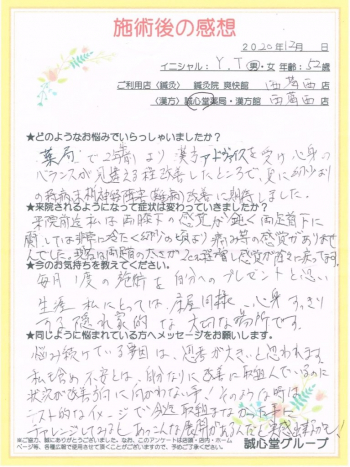 施術後の感想
2020年12月 日
イニシャル:Y.T 男・女 年齢:52歳
ご利用店〈鍼灸〉 鍼灸院 爽快館 西葛西 店
〈漢方〉誠心堂薬局・漢方館 西葛西 店
★どのようなお悩みでいらっしゃいましたか?
薬局で2歳前より漢方アドヴァイスを受け心身の
バランスが見違える程改善したところで、更に幼少より
の持病末梢神経障害(難病)改善に期待しました。
★来院されるようになって症状は変わっていきましたか?
来院前迄私は両膝下の感覚が鈍く両足首下に
関しては非常に冷たく幼少の頃より痛み等の感覚がありませ
んでした。現在は両脚の太さが2cm程増し感覚が徐々に戻ってます。
★今のお気持ちを教えてください。
毎月1度の施術を自分へのプレゼントと思い
生涯私にとっては、床屋同様、心身すっきり
する隠れ家的な大切な場所です。
★同じように悩まれている方へメッセージをお願いします。
悩み続けている要因は、思考が大きいと思われます。
私も含め不安とは、自分なりに改善に取組んでいるのに
状況が改善方向に向かわない事!そのような時は
ラスト的なイメージで今迄取組まなかった事に
チャレンジしてみるとあっこんな展開があるんだと実感出来るかも!
※ご協力、誠にありがとうございました。なお、このアンケートは店頭・店内・ホーム
ページ等、各種広報で使用させて頂くことがございますので、予めご了承ください。
誠心堂グループ